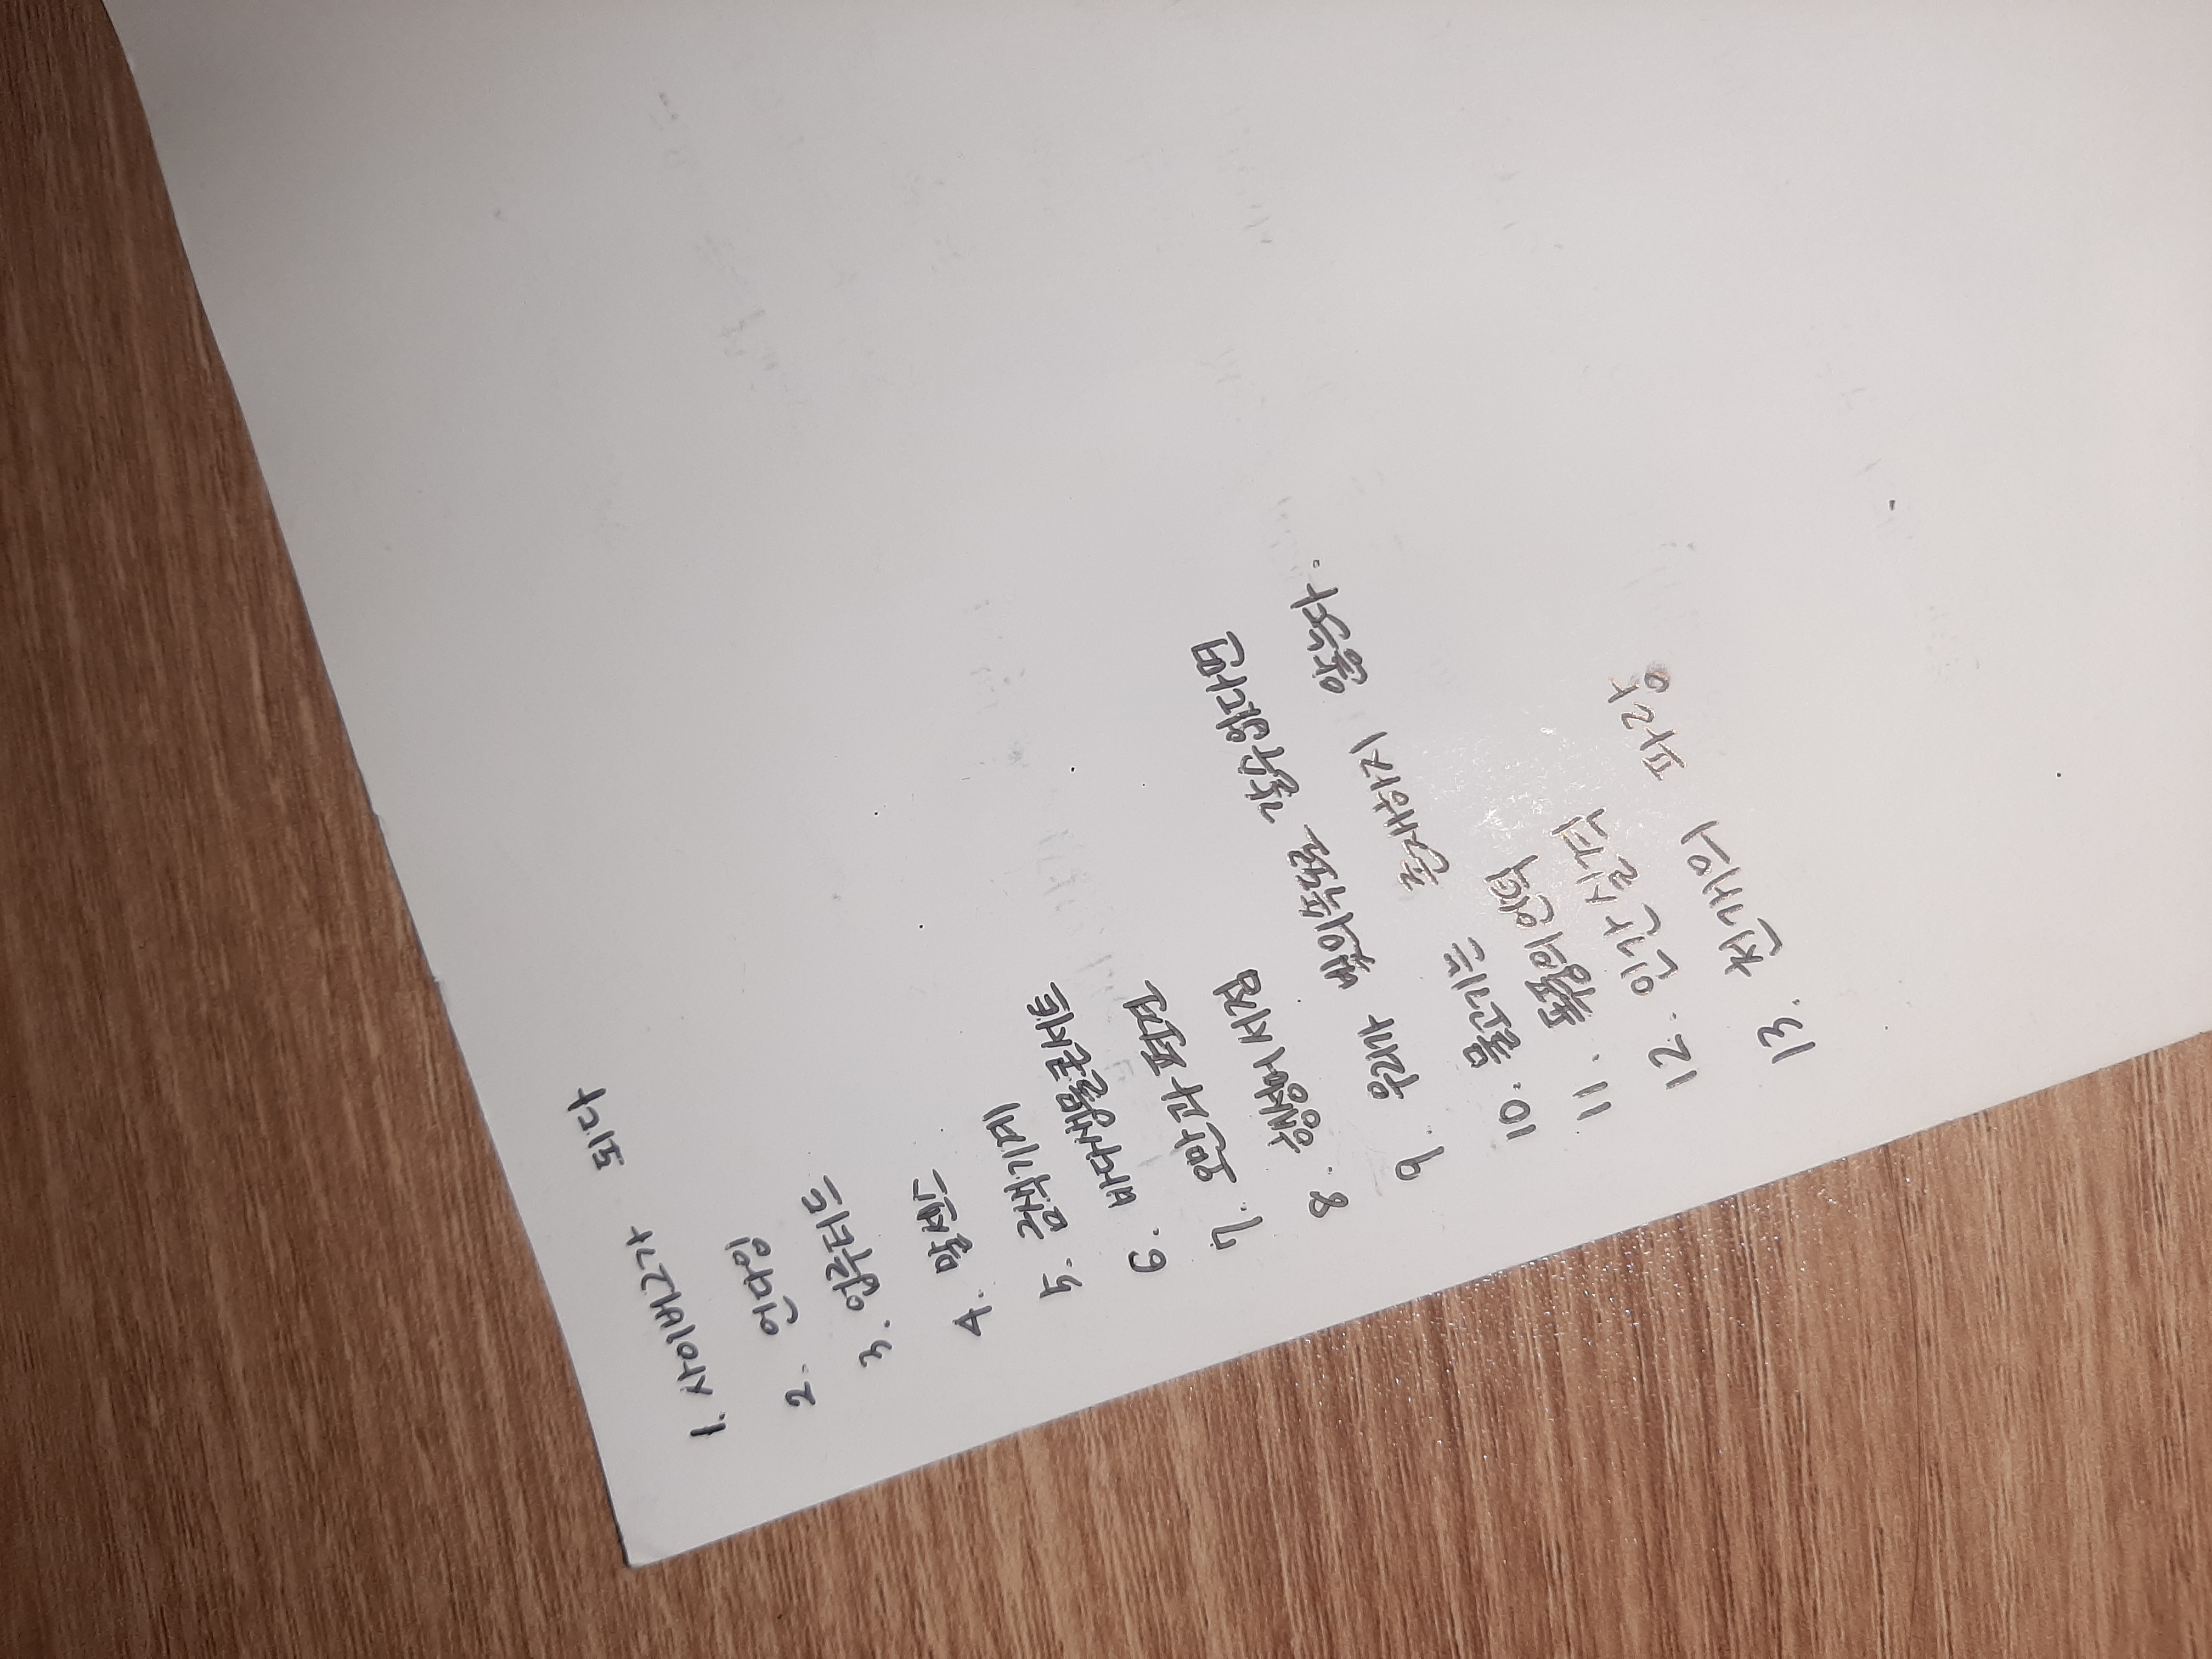 1. 사이버그가 되다
2. 언다잉
3. 업루티드
4. 말센스
5. 금색기계
6. 바다생물콘서트
7. 오만과 편견
8. 행성어 서점
9. 우리가 빛의속도로 갈수없다면
10. 물고기는 존재하지 않는다.
11. 폭풍의 언덕
12. 인간실격
13. 천개의 파랑